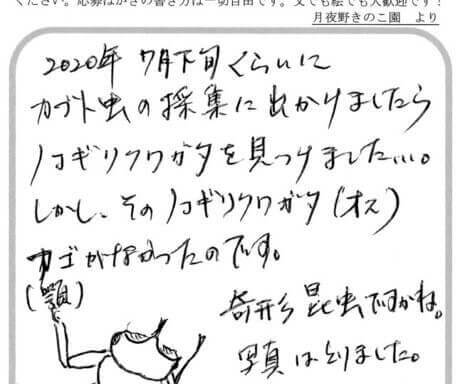 ください。応募はがきの書き方は一切自由です。文でも絵でも大歓迎です！
月夜野きのこ園　より
2020年 7月下旬くらいに
カブト虫の採集に出かけましたら
ノコギリクワガタを見つけました…。
しかし、そのノコギリクワガタ（オス）
カゴがなかったのです。
（顎）
奇形昆虫ですかね。
写真はとりました。